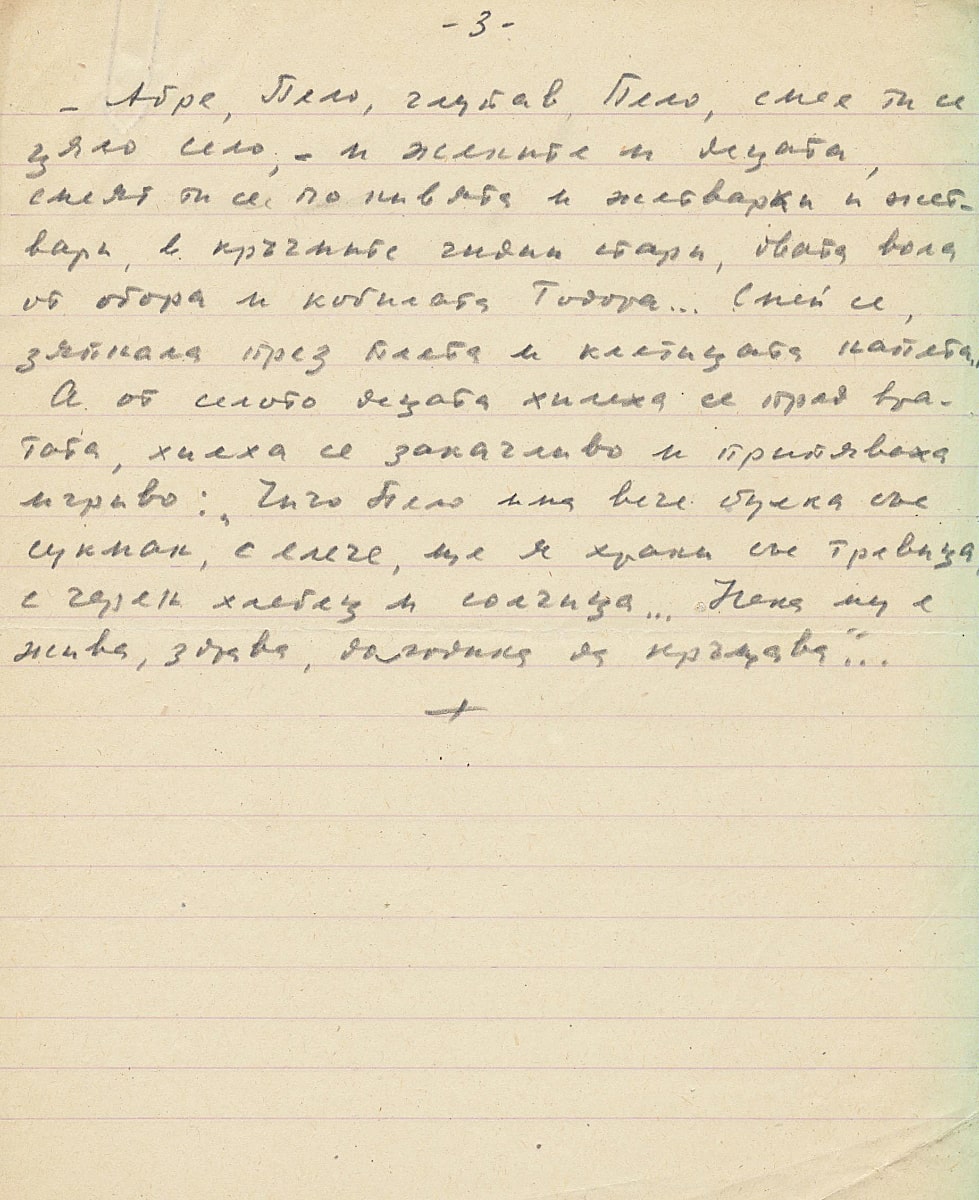 - 3 -
- Абре, Пело, глупав Пело, смее ти се
цяло село, - и жените и децата,
смеят ти се по нивята и жетварки и жет-
вари, в кръчмите чичи стари, двата вола
от обора и кобилата Тодора... Смей се,
зяпнала през плета и клетицата
А от селото децата хилеха се пред вра-
тата, хилеха се закачливо и припяваха
игриво: „Чичо Пело има вече булка със
сукман, с елече, ще я храни със тревица,
с черен хлебец и солчица... Нека му е
жива, здрава, догодина да кръщава"...